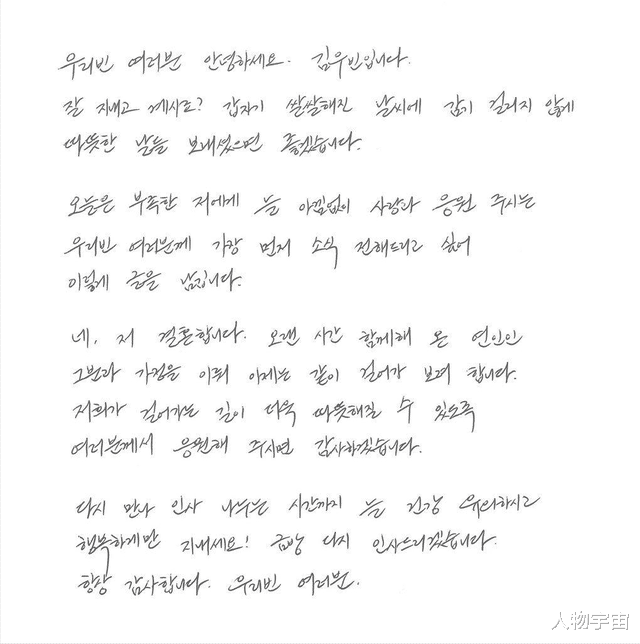 우리빈 여러분 안녕하세요. 김우빈입니다.
잘 지내고 계시죠? 갑자기 쌀쌀해진 날씨에 감기 걸리지 않게
따뜻한 날들 보내셨으면 좋겠습니다.
오늘은 부족한 저에게 늘 아낌없이 사랑과 응원 주시는
우리빈 여러분께 가장 먼저 소식 전해드리고 싶어
이렇게 글을 남깁니다.
네, 저 결혼합니다. 오랜 시간 함께해 온 연인인
그분과 가정을 이뤄 이제는 같이 걸어가 보려 합니다.
저희가 걸어가는 길이 더욱 따뜻해질 수 있도록
여러분께서 응원해 주시면 감사하겠습니다.
다시 만나 인사 나누는 시간까지 늘 건강 유의하시고
행복하게만 지내세요! 금방 다시 인사드리겠습니다.
항상 감사합니다. 우리빈 여러분.
人物宇宙